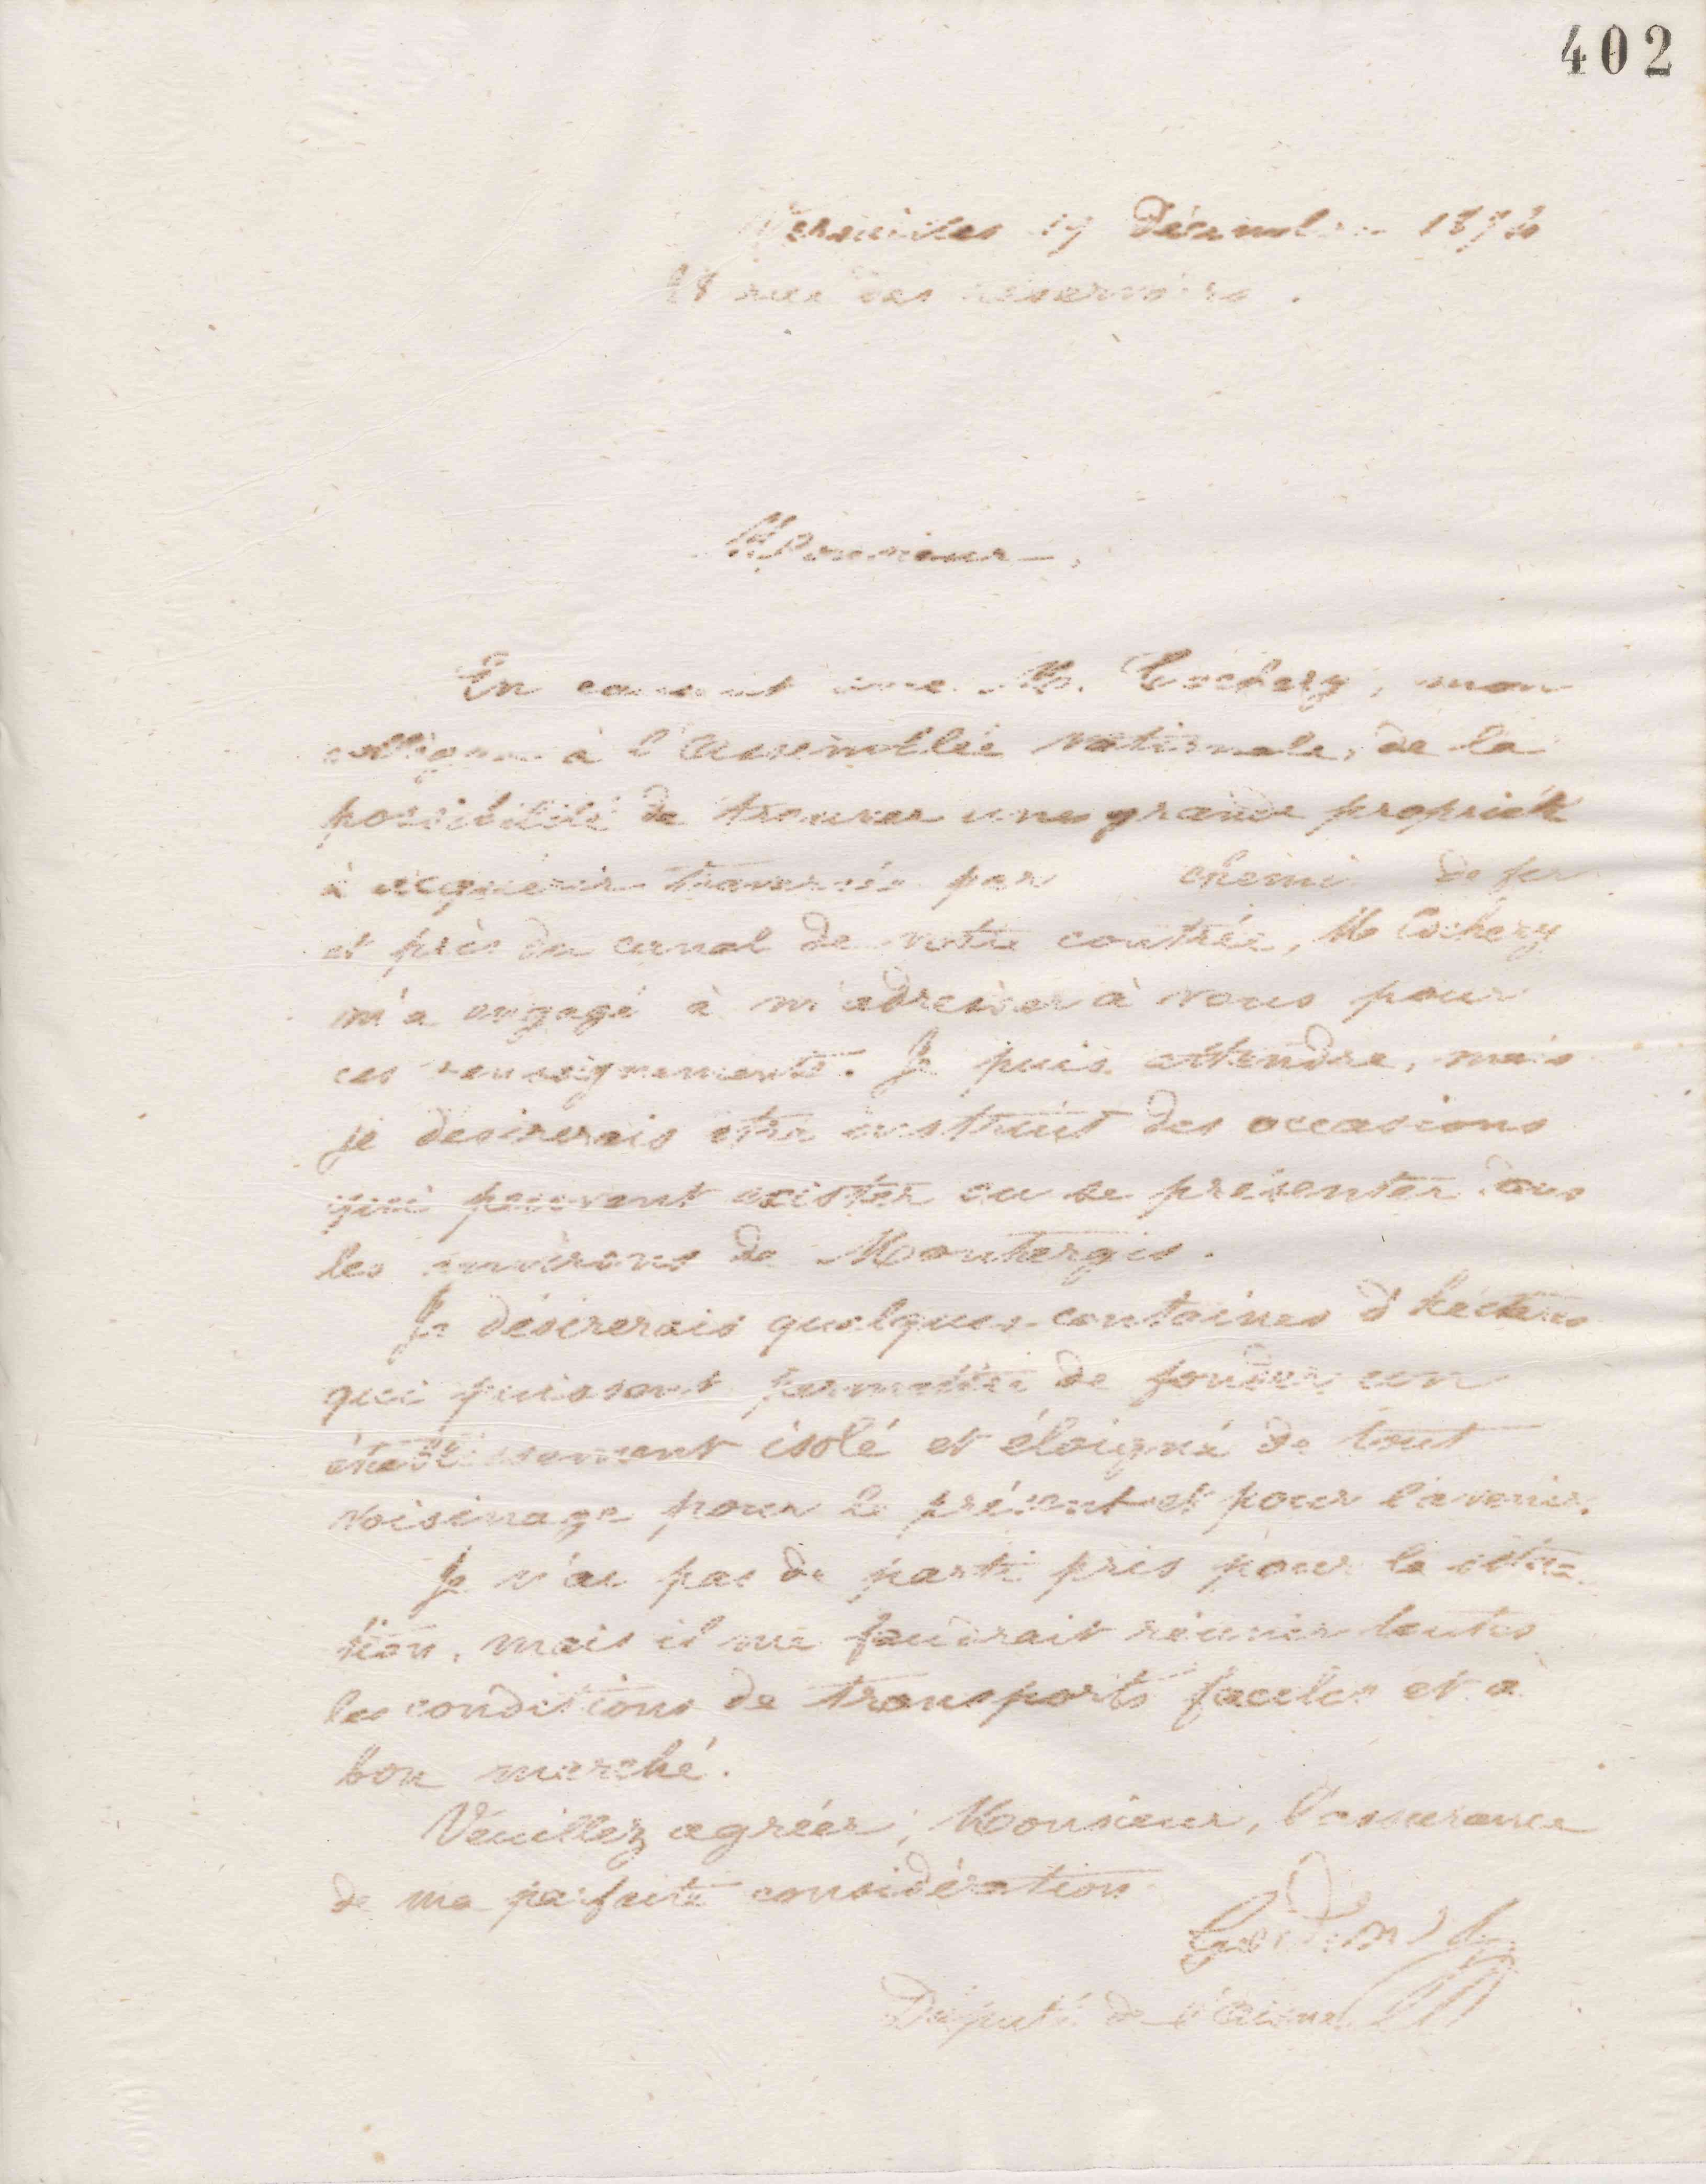 402
Versailles 19 Décembre 1874
28 rue des réservoirs.
Monsieur,
En causant avec M. Cochery, mon
collègue à l'assemblée nationale, de la
possibilité de trouver une grande propriété
à acquérir traversée par chemin de fer
et près du canal de votre contrée, M Cochery
m'a engagé à m'adresser à vous pour
ces renseignements. Je puis attendre, mais
je desirerais etre instruit des occasions
qui peuvent exister ou se présenter dans
les environs de Montargis.
Je désirerais quelques centaines d'hectares
qui puissent permettre de fonder un
établissement isolé et éloigné de tout
voisinage pour le présent et pour l'avenir.
Je n'ai pas de parti pris pour la situa=
tion, mais il me faudrait réunir toutes
les conditions de transports faciles et à
bon marché.
Veuillez agréer, Monsieur, l'assurance
de ma parfaite considération
Godin
Député de l'Aisne